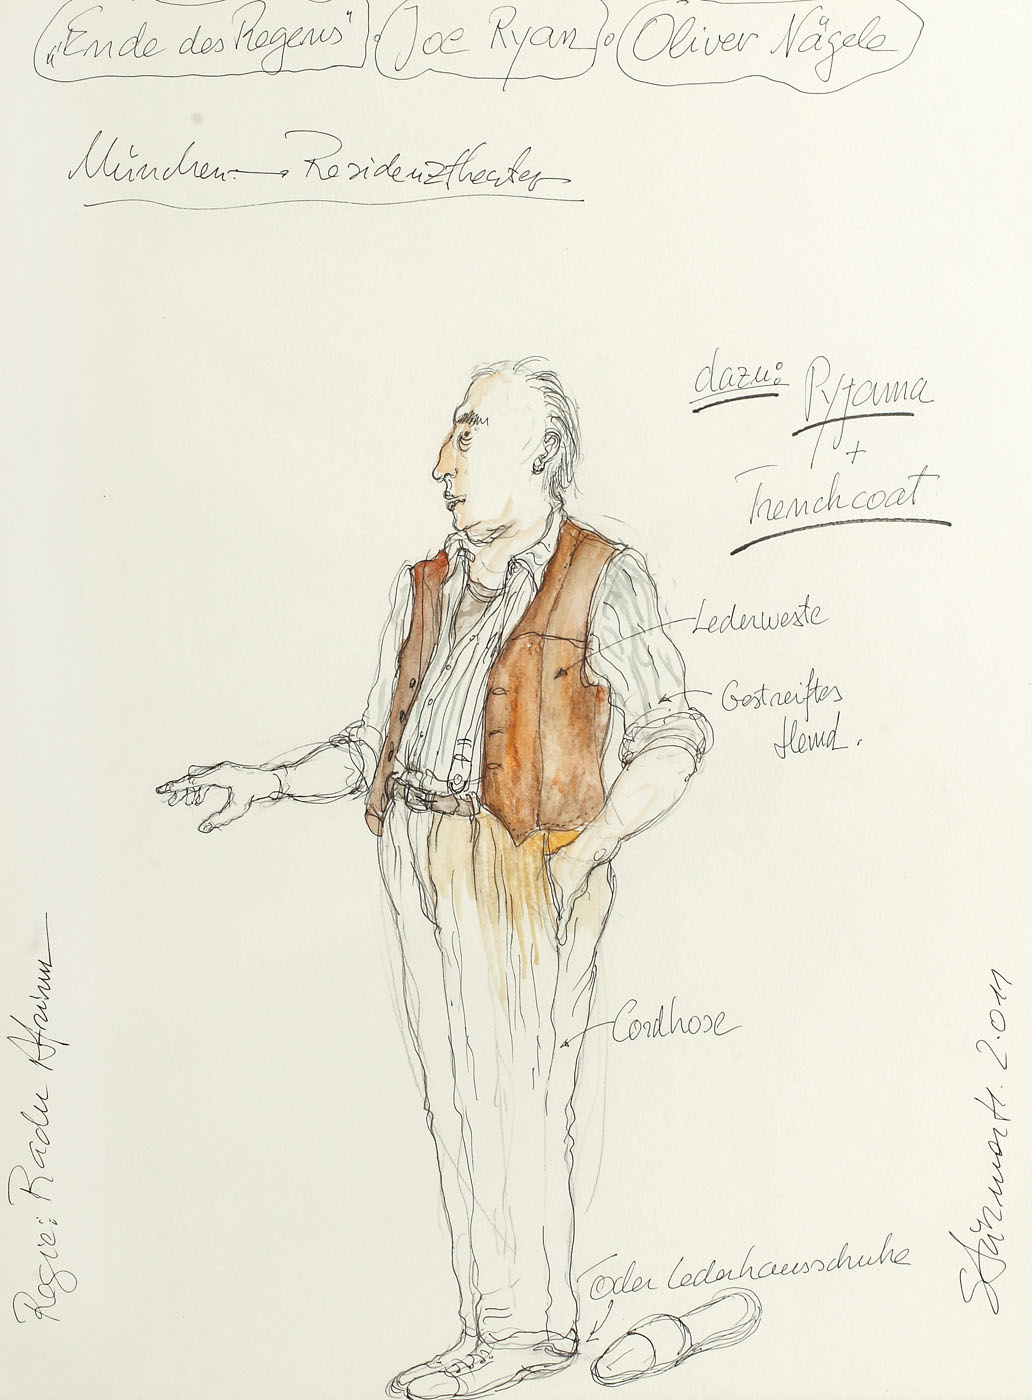 „Ende des Regens“ Joe Ryan Oliver Nägele
München → Residenztheater
dazu: Pyjama
+
Trenchcoat
Lederweste
Gestreiftes
Hemd.
Cordhose
oder Lederhausschuhe
Regie: Radu Afrim
2.011